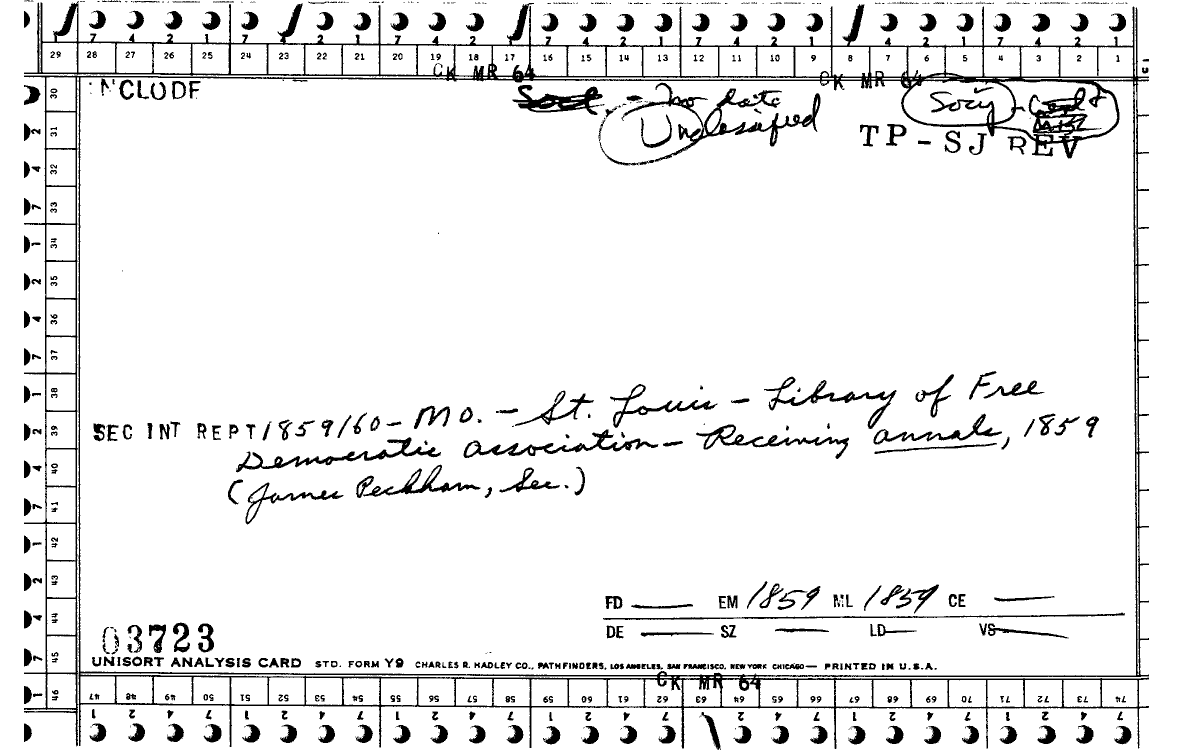 7 4 2 1 7 4 2 1 7 4 2 1 7 4 2 1 7 4 2 1 7 4 2 1 7 4 2 1
29 28 27 26 25 24 23 22 21 20 19 18 17 16 15 14 13 12 11 10 9 8 7 6 5 4 3 2 1
CK MR 64 CK MR 64
NCLUDE
- no date
Unclassified
Socy -
TP-SJ REV
30 31 32 33 34 35 36 37 38 39 40 41 42 43 44 45 46
SEC INT REPT/1859/60- MO. - St. Louis - Library of Free
Democratic Association - Receiving annals, 1859
(James Peckham, Sec.)
FD — EM 1859 ML 1859 CE —
DE — SZ — LD— VS—
03723
UNISORT ANALYSIS CARD STD. FORM Y9 CHARLES R. HADLEY CO., PATHFINDERS, LOS ANGELES, SAN FRANCISCO, NEW YORK CHICAGO— PRINTED IN U.S.A.
CK MR 64
47 48 49 50 51 52 53 54 55 56 57 58 59 60 61 62 63 64 65 66 67 68 69 70 71 72 73 74
1 2 4 7 1 2 4 7 1 2 4 7 1 2 4 7 1 2 4 7 1 2 4 7 1 2 4 7